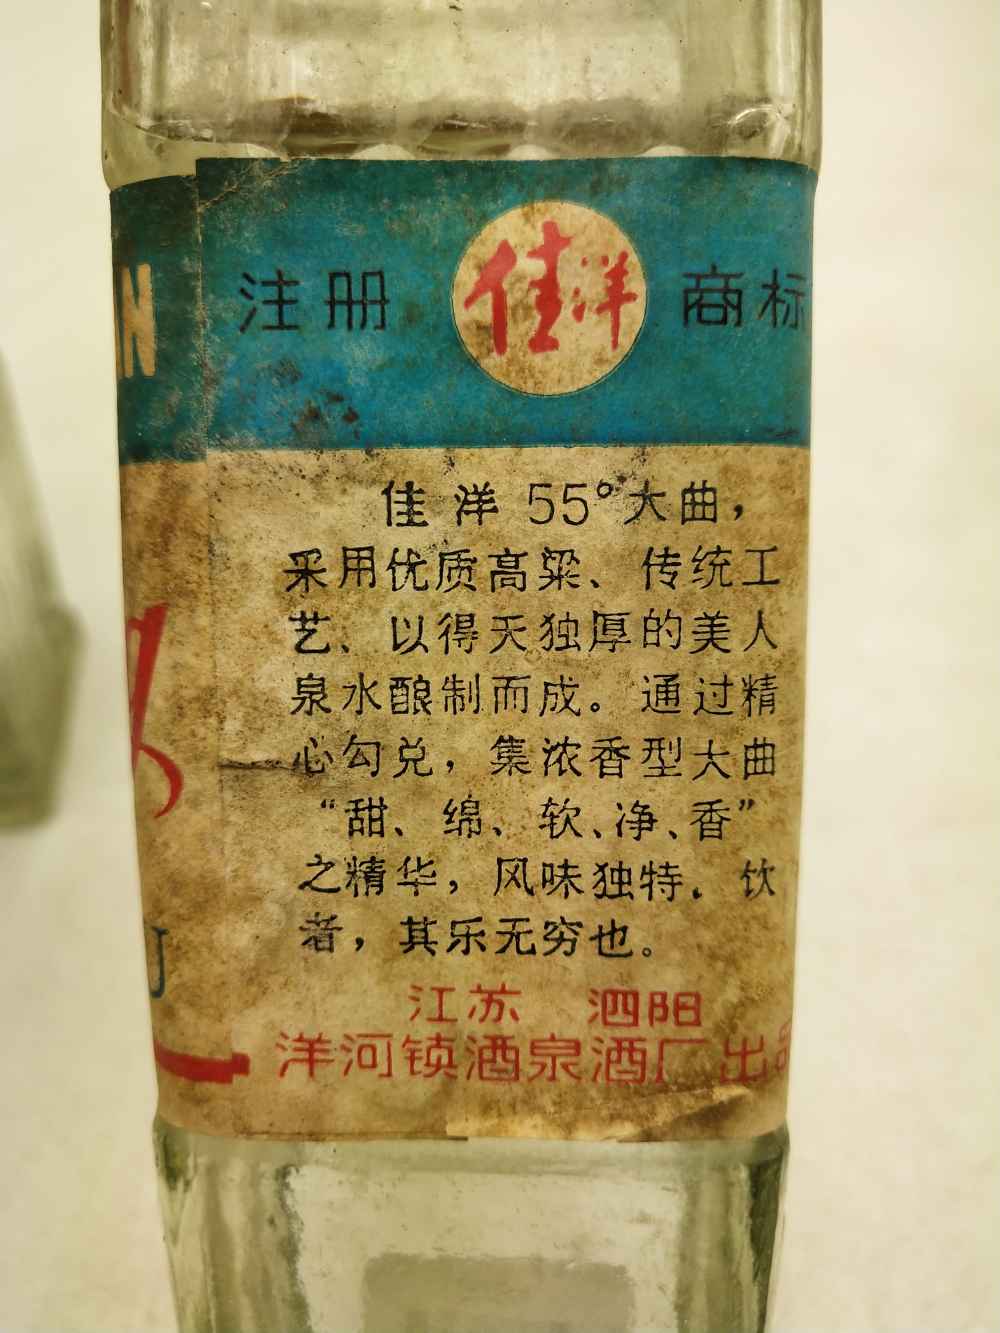 注册 佳洋 商标
佳洋 55°大曲，
采用优质高粱、传统工
艺、以得天独厚的美人
泉水酿制而成。通过精
心勾兑，集浓香型大曲
“甜、绵、软、净、香”
之精华，风味独特．饮
者，其乐无穷也。
江苏 泗阳
洋河镇酒泉酒厂出品